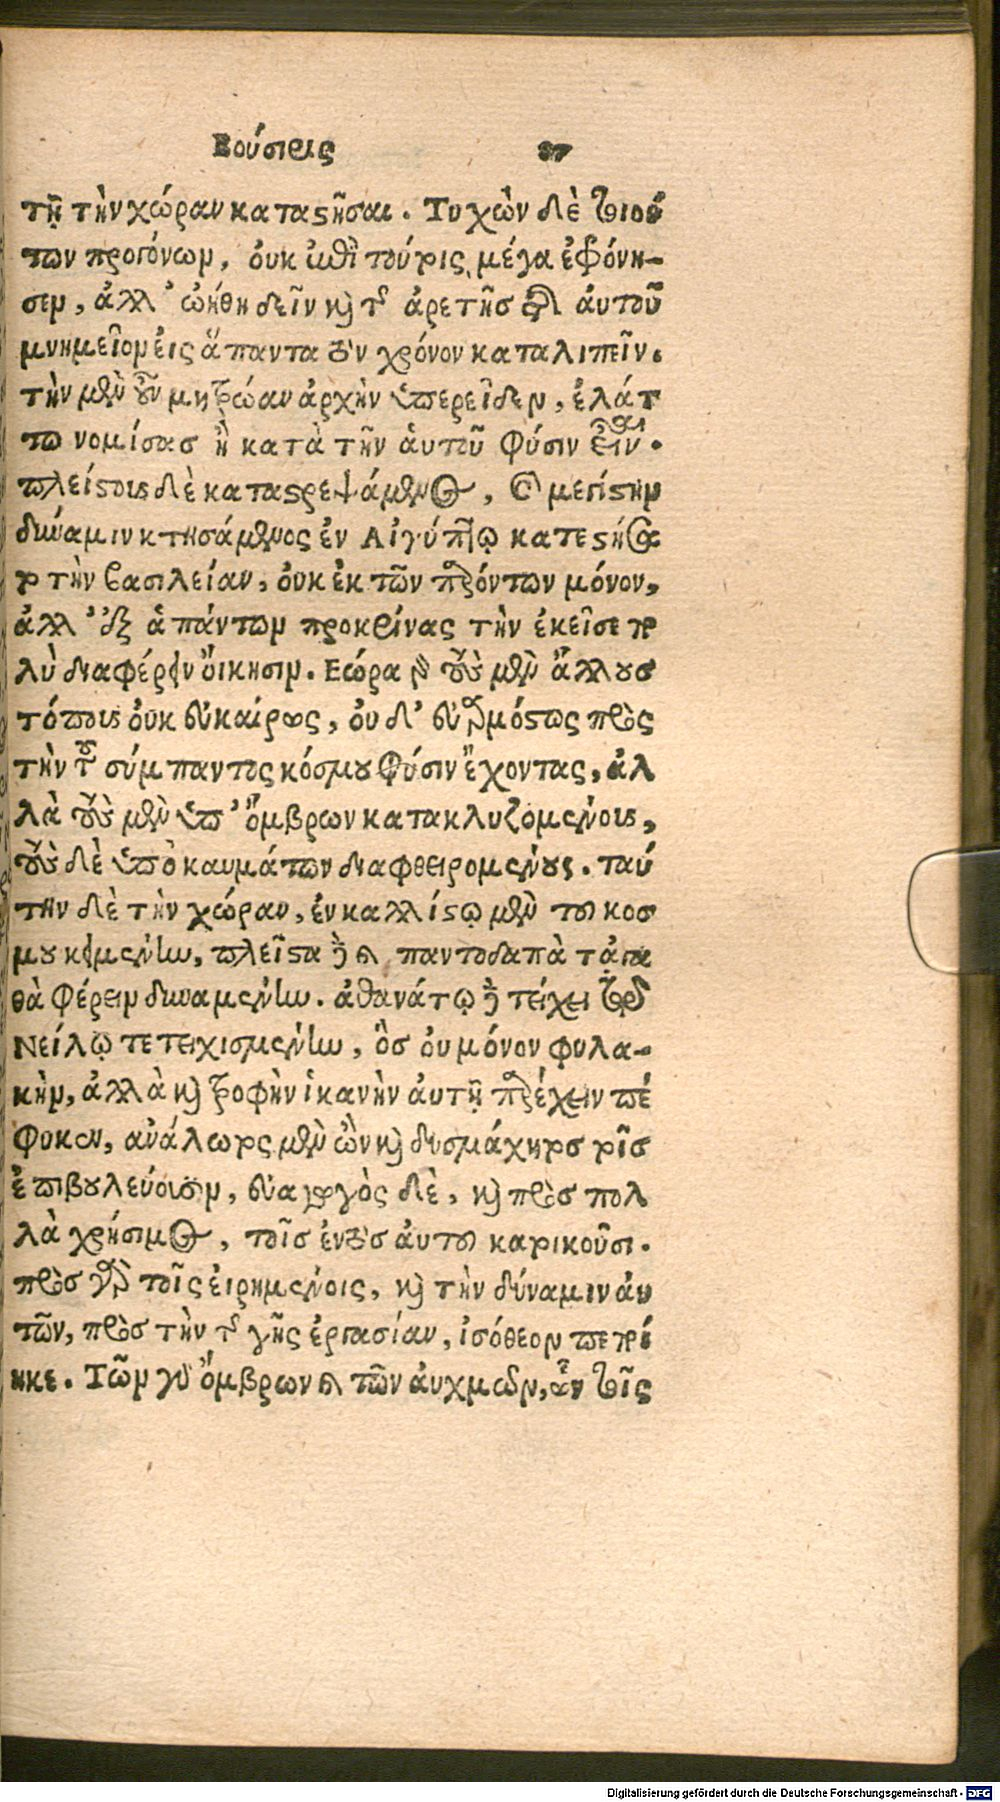 Βούσιρις 37
τῇ τὴν χώραν καταστῆσαι. Τυχὼν δὲ τοιού
των προγόνων, οὐκ ἐπὶ τούτοις μέγα ἐφρόνη-
σεν, ἀλλ' ᾠήθη δεῖν καὶ τῆς ἀρετῆς τῆς αὑτοῦ
μνημεῖον εἰς ἅπαντα τὸν χρόνον καταλιπεῖν.
τὴν μὲν οὖν μητρώαν ἀρχὴν ὑπερεῖδεν, ἐλάτ
τω νομίσας ἢ κατὰ τὴν αὑτοῦ φύσιν εἶναι.
πλείστους δὲ καταστρεψάμενος, καὶ μεγίστην
δύναμιν κτησάμενος ἐν Αἰγύπτῳ κατεστήσα
το τὴν βασιλείαν, οὐκ ἐκ τῶν παρόντων μόνον,
ἀλλ' ἐξ ἁπάντων προκρίνας τὴν ἐκεῖσε πο
λὺ διαφέρειν οἴκησιν. Εώρα γὰρ τοὺς μὲν ἄλλους
τόπους οὐκ εὐκαίρως, οὐδ' εὐαρμόστως πρὸς
τὴν τοῦ σύμπαντος κόσμου φύσιν ἔχοντας, ἀλ
λὰ τοὺς μὲν ὑπ' ὄμβρων κατακλυζομένους,
τοὺς δὲ ὑπὸ καυμάτων διαφθειρομένους. ταύ
την δὲ τὴν χώραν, ἐν καλλίστῳ μὲν τοῦ κοσ
μου κειμένην, πλεῖστα δὲ καὶ παντοδαπὰ τἀγα
θὰ φέρειν δυναμένην. ἀθανάτῳ δὲ τείχει τῷ
Νείλῳ τετειχισμένην, ὃς οὐ μόνον φυλα-
κὴν, ἀλλὰ καὶ τροφὴν ἱκανὴν αὐτῇ παρέχειν πέ
φυκεν, ἀνάλωτος μὲν ὢν καὶ δυσμάχητος τοῖς
ἐπιβουλεύουσιν, εὐαγωγὸς δὲ, καὶ πρὸς πολ
λὰ χρήσιμος, τοῖς ἐντὸς αὐτοῦ κατοικοῦσι.
πρὸς γὰρ τοῖς εἰρημένοις, καὶ τὴν δύναμιν αὐ
τῶν, πρὸς τὴν τῆς γῆς ἐργασίαν, ἰσόθεον πεποί
ηκε. Τῶν γὰρ ὄμβρων καὶ τῶν αὐχμῶν, τοῖς
Digitalisierung gefördert durch die Deutsche Forschungsgemeinschaft - DFG